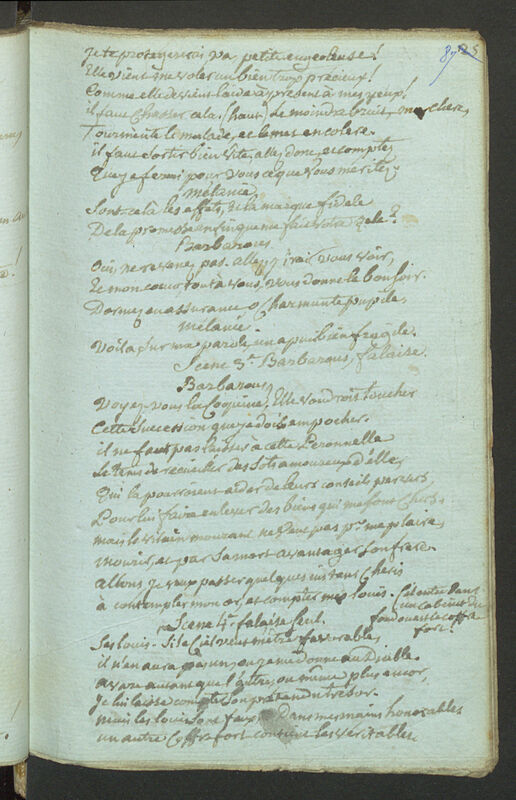 je te protegerai va petite enjoleuse!
Elle vient me voler un bien trop précieux!
Comme elle devient laide à présent à mes yeux!
il faut Chasser cela. (haut) Le moindre bruit, ma chere,
Tourmente le malade, et le met en colere.
il faut sortir bien vite, allez donc, et comptez
Que je ferai pour vous ce que vous méritez.
Mélanie
Sont-ce là les effets, et la marque fidele
De la promesse qu'en me fait votre zele?
Barbarous
Oui, ne revenez pas. allez j'irai vous voir,
Et mon coeur tout à vous, vous donne le bonsoir.
Dormez en assurance ô charmante pupile,
Mélanie.
Voilà sur ma parole un appui bien fragile.
Scene 3.e Barbarous, falaise.
Barbarous,
Voyez-vous la Coquine, Elle voudroit toucher
Cette succession que je dois empocher.
il ne faut pas laisser à cette Peronnelle
Le tems de recueillir des sots amoureux d'elle,
Qui la pourroient aider de leurs conseils pervers,
Pour lui faire enlever des biens qui me sont chers.
mais le vilain mourant ne peut pas pr. me plaire,
mourir, et par sa mort avantager son frere.
allons je veux passer quelques instans cheris
à contempler mon or, et compter mes louis. (il entre dans
un cabinet du
fond ou est le coffre
fort.)
Scene 4.e falaise seul.
Ses louis. Si le Ciel veut m'être favorable,
il n'en aura pas un, ou je me donne au Diable.
avare autant que l'autre, ou même plus encor,
je lui laisse compter son prétendu trésor.
mais les louis sont faux, Dans mes mains honorables
un autre Coffre fort contient les véritables.